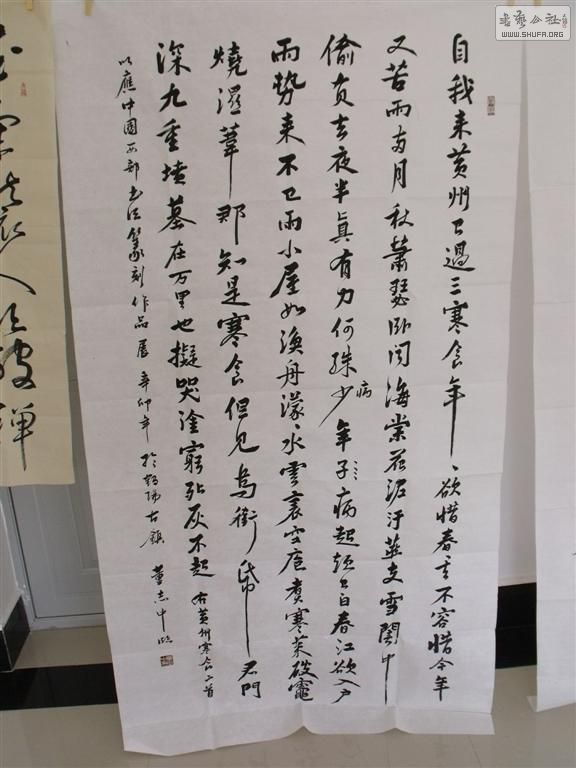 自我来黄州已過三寒食年年欲惜春春去不容惜今年
又苦雨两月秋蕭瑟卧闻海棠花泥汙燕支雪闇中
偷負去夜半真有力何殊少病年子病起頭已白春江欲入户
雨势来不已雨小屋如渔舟濛濛水雲裏空庖煮寒菜破竈
燒濕葦那知是寒食但见烏銜帋君門
深九重墳墓在万里也擬哭塗窮死灰不起右黄州寒食二首
以應中國西部书法篆刻作品展辛卯年於
古鎮董志中
書法公社
WWW.SHUFA.ORG